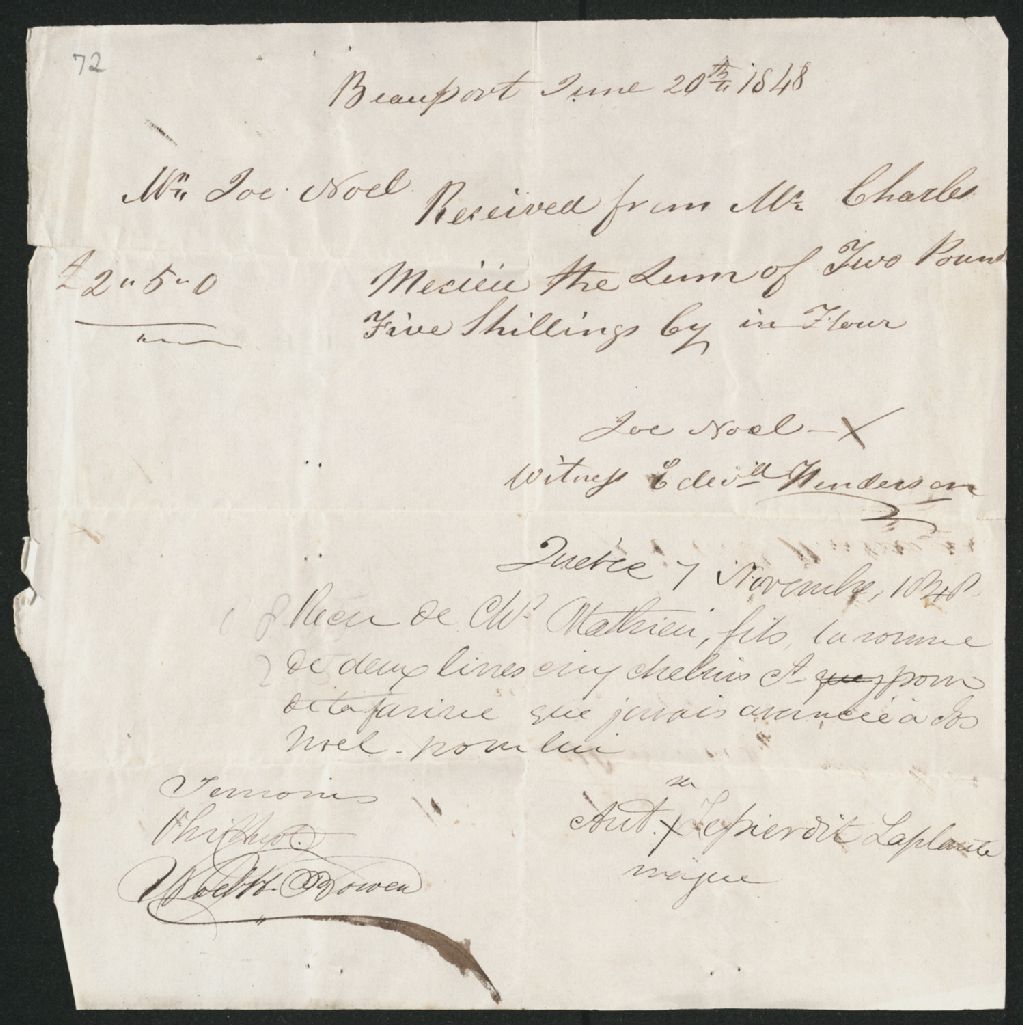 72
Beauport June 20th 1848
Mr Joe Noel
Received from Mr Charles
£2"5"0 Mecieu the Sum of Two Pound
Five Shillings by in Flour
Joe Noel - X
Witness Edwd Henderson
Quebec 7 Novembre, 1848
Recu de Chs Mathieu, fils, la somme
de deux livres cinq chelins Ct que pour
de la farine que j'avais avancée à Jos
Noel - pour lui
Temoins
sa
Ant. X Lepierdit Laplante
marque
Bowen